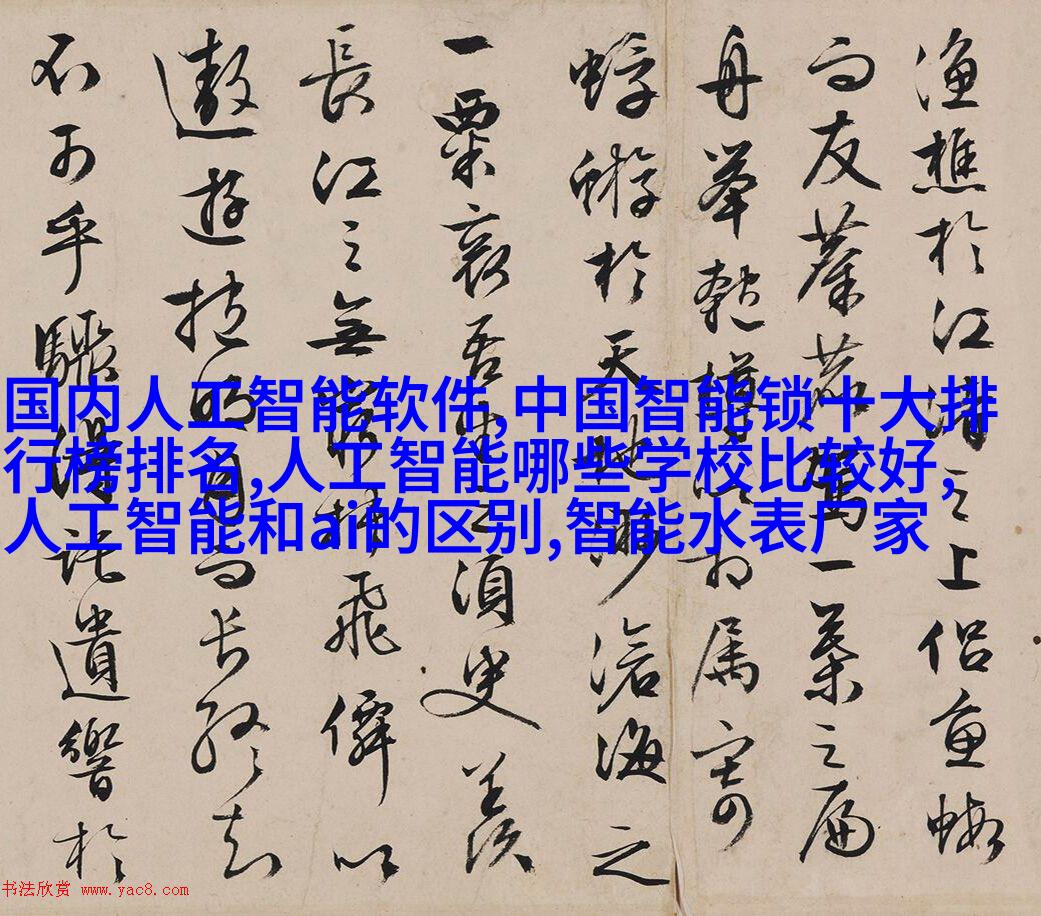 渔樵於江渚之上侣魚蝦
而友麋鹿駕一葉之扁
舟舉匏樽以相属寄
蜉蝣於天地渺滄海之
一粟哀吾生之須臾羡
長江之無窮挾飛僊以
遨遊抱明月而長終知
不可乎驟得託遺響於
国内人工智能软件,中国智能锁十大排
行榜排名,人工智能哪些学校比较好,
人工智能和ai的区别,智能水表厂家
书法欣赏 www.yac8.com